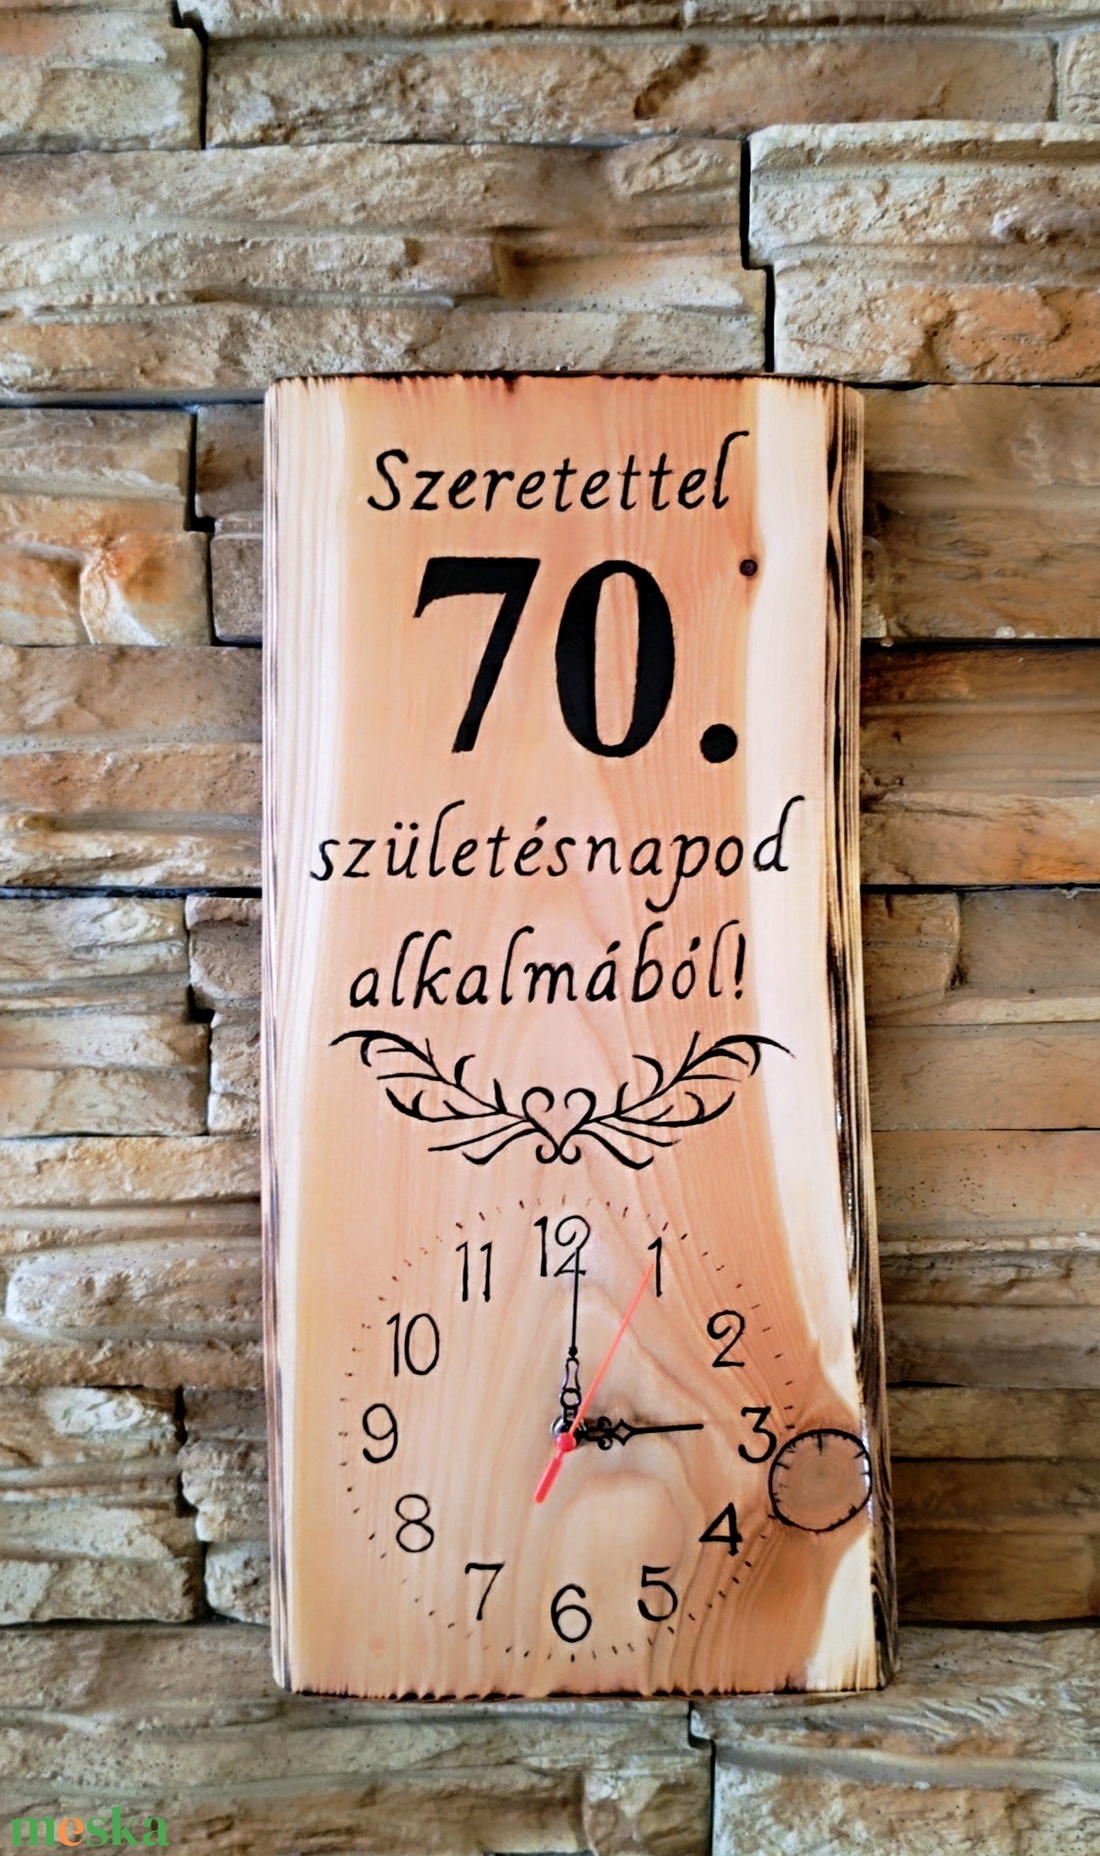 Szeretettel
70.
születésnapod
alkalmából!
12
11 1
10 2
9 3
8 4
7 5
6
meska